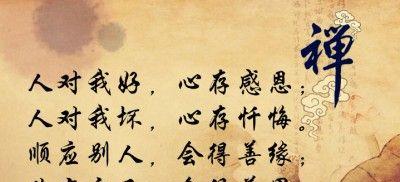 禅
人对我好，心存感恩；
人对我坏，心存忏悔。
顺应别人，会得善缘；